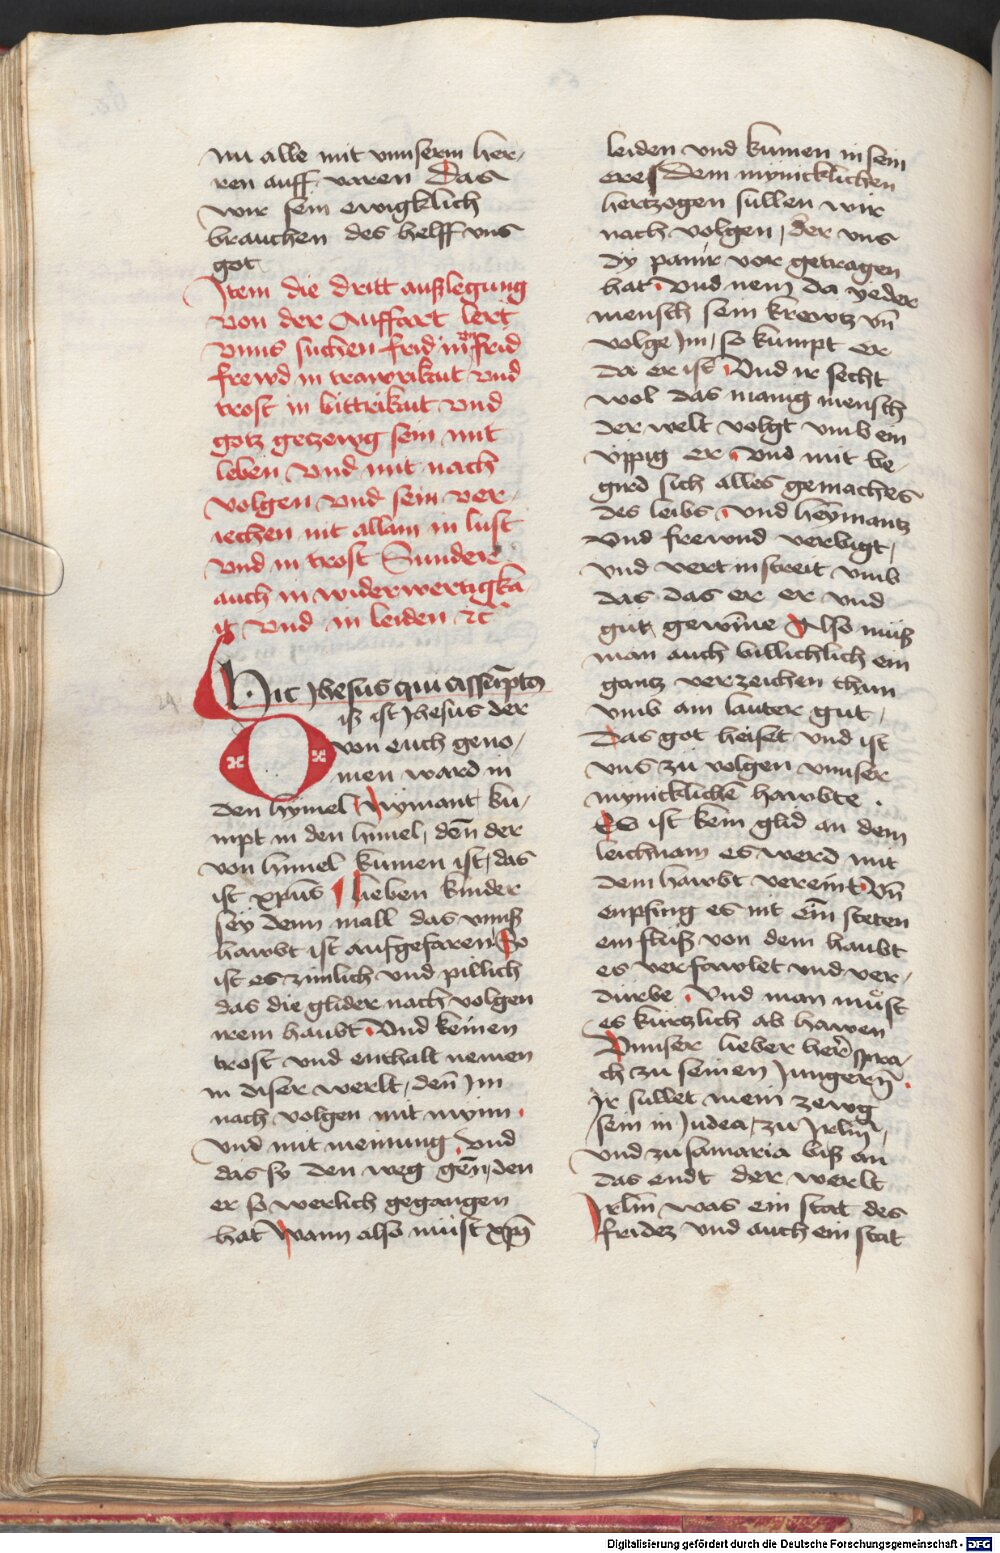 nu alle mit vnnserm her¬
ren auff varen Das
wir sein ewigklich
brauchen des helff vns
got
Item die dritt außlegung
von der Auffart lert
vnns suchen frid in vnfrid
frewd in trawrikait vnd
trost in bittrikait vnd
gotz getzewg sein mit
leben vnd mit nach
volgen vnd sein ver¬
iechen nit allain in lust
vnd in trost Sunder
auch in widerwertigka
it vnd in leiden ꝛc̃
Hic Jhesus qui assūptꝰ
iß ist Jhesus der
von euch geno¬
men ward in
den hymel Nymant ku¬
mpt in den himel, deñ der
von himel kumen ist, das
ist xp̄us lieben kinder
sey denn mall das vnnß
hawbt ist aufgefaren So
ist es zimlich vnd pillich
das die glider nach volgen
irem haubt Vnd keinen
trost vnd enthalt nemen
in diser werlt, deñ Im
nach volgen mit mynn
vnd mit meinung vnd
das sy den weg gen̄, den
er so werlich gegangen
hat Wann also müst xp̄s
leiden vnd kumen in sein
ere Dem mynicklichen
hertzogen sullen wir
nach volgen, der vns
dy panir vor getragen
hat Vnd nem da yeder
mensch sein krewtz vn̄
volge Im, so kumpt er
da er ist Vnd ir secht
wol das manig mensch
der welt volgt vmb ein
üppig er Vnd mit be¬
gird sich alles gemaches
des leibs, vnd heymantz
vnd frewnd verwigt,
vnd vert in streit vmb
das das er er vnd
güt gewīne Also müß
man auch billichlich ein
gantz verzeichen thun
vmb am lauter gut,
Das got heiset vnd ist
vns zu volgen vnnser
mynicklichē hawbte .
Es ist kein glid an dem
leichnam es werd mit
dem hawbt vereint Vn̄
enpfing es nit ein steten
ein fluß von dem haubt
es verfawlet vnd ver¬
durbe, Vnd man müst
es kurtzlich ab hawen
Vnnser lieber her̄ spra¬
ch zu seinen Jungern̄.
Ir sullet mein zewg
sein in Judea, zu Jrlm̄,
vnd zu samaria biß an
das endt der werlt
Jrlm̄ was ein stat des
fridez vnd auch ein stat
Digitalisierung gefördert durch die Deutsche Forschungsgemeinschaft - DFG